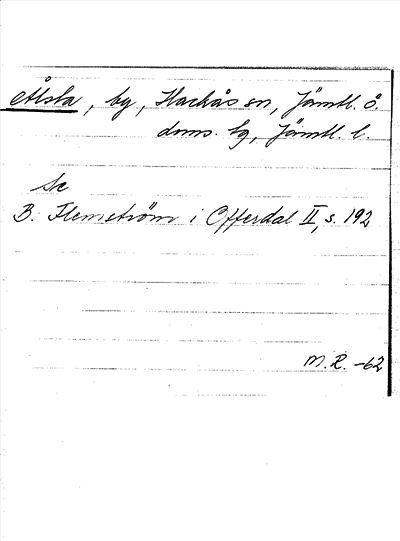 Ålsta, by, Hackås sn, Jämtl. ö.
doms. tg, Jämtl. l.
Se
B. Flemström i Offerdal II, s. 192
M. R. -62